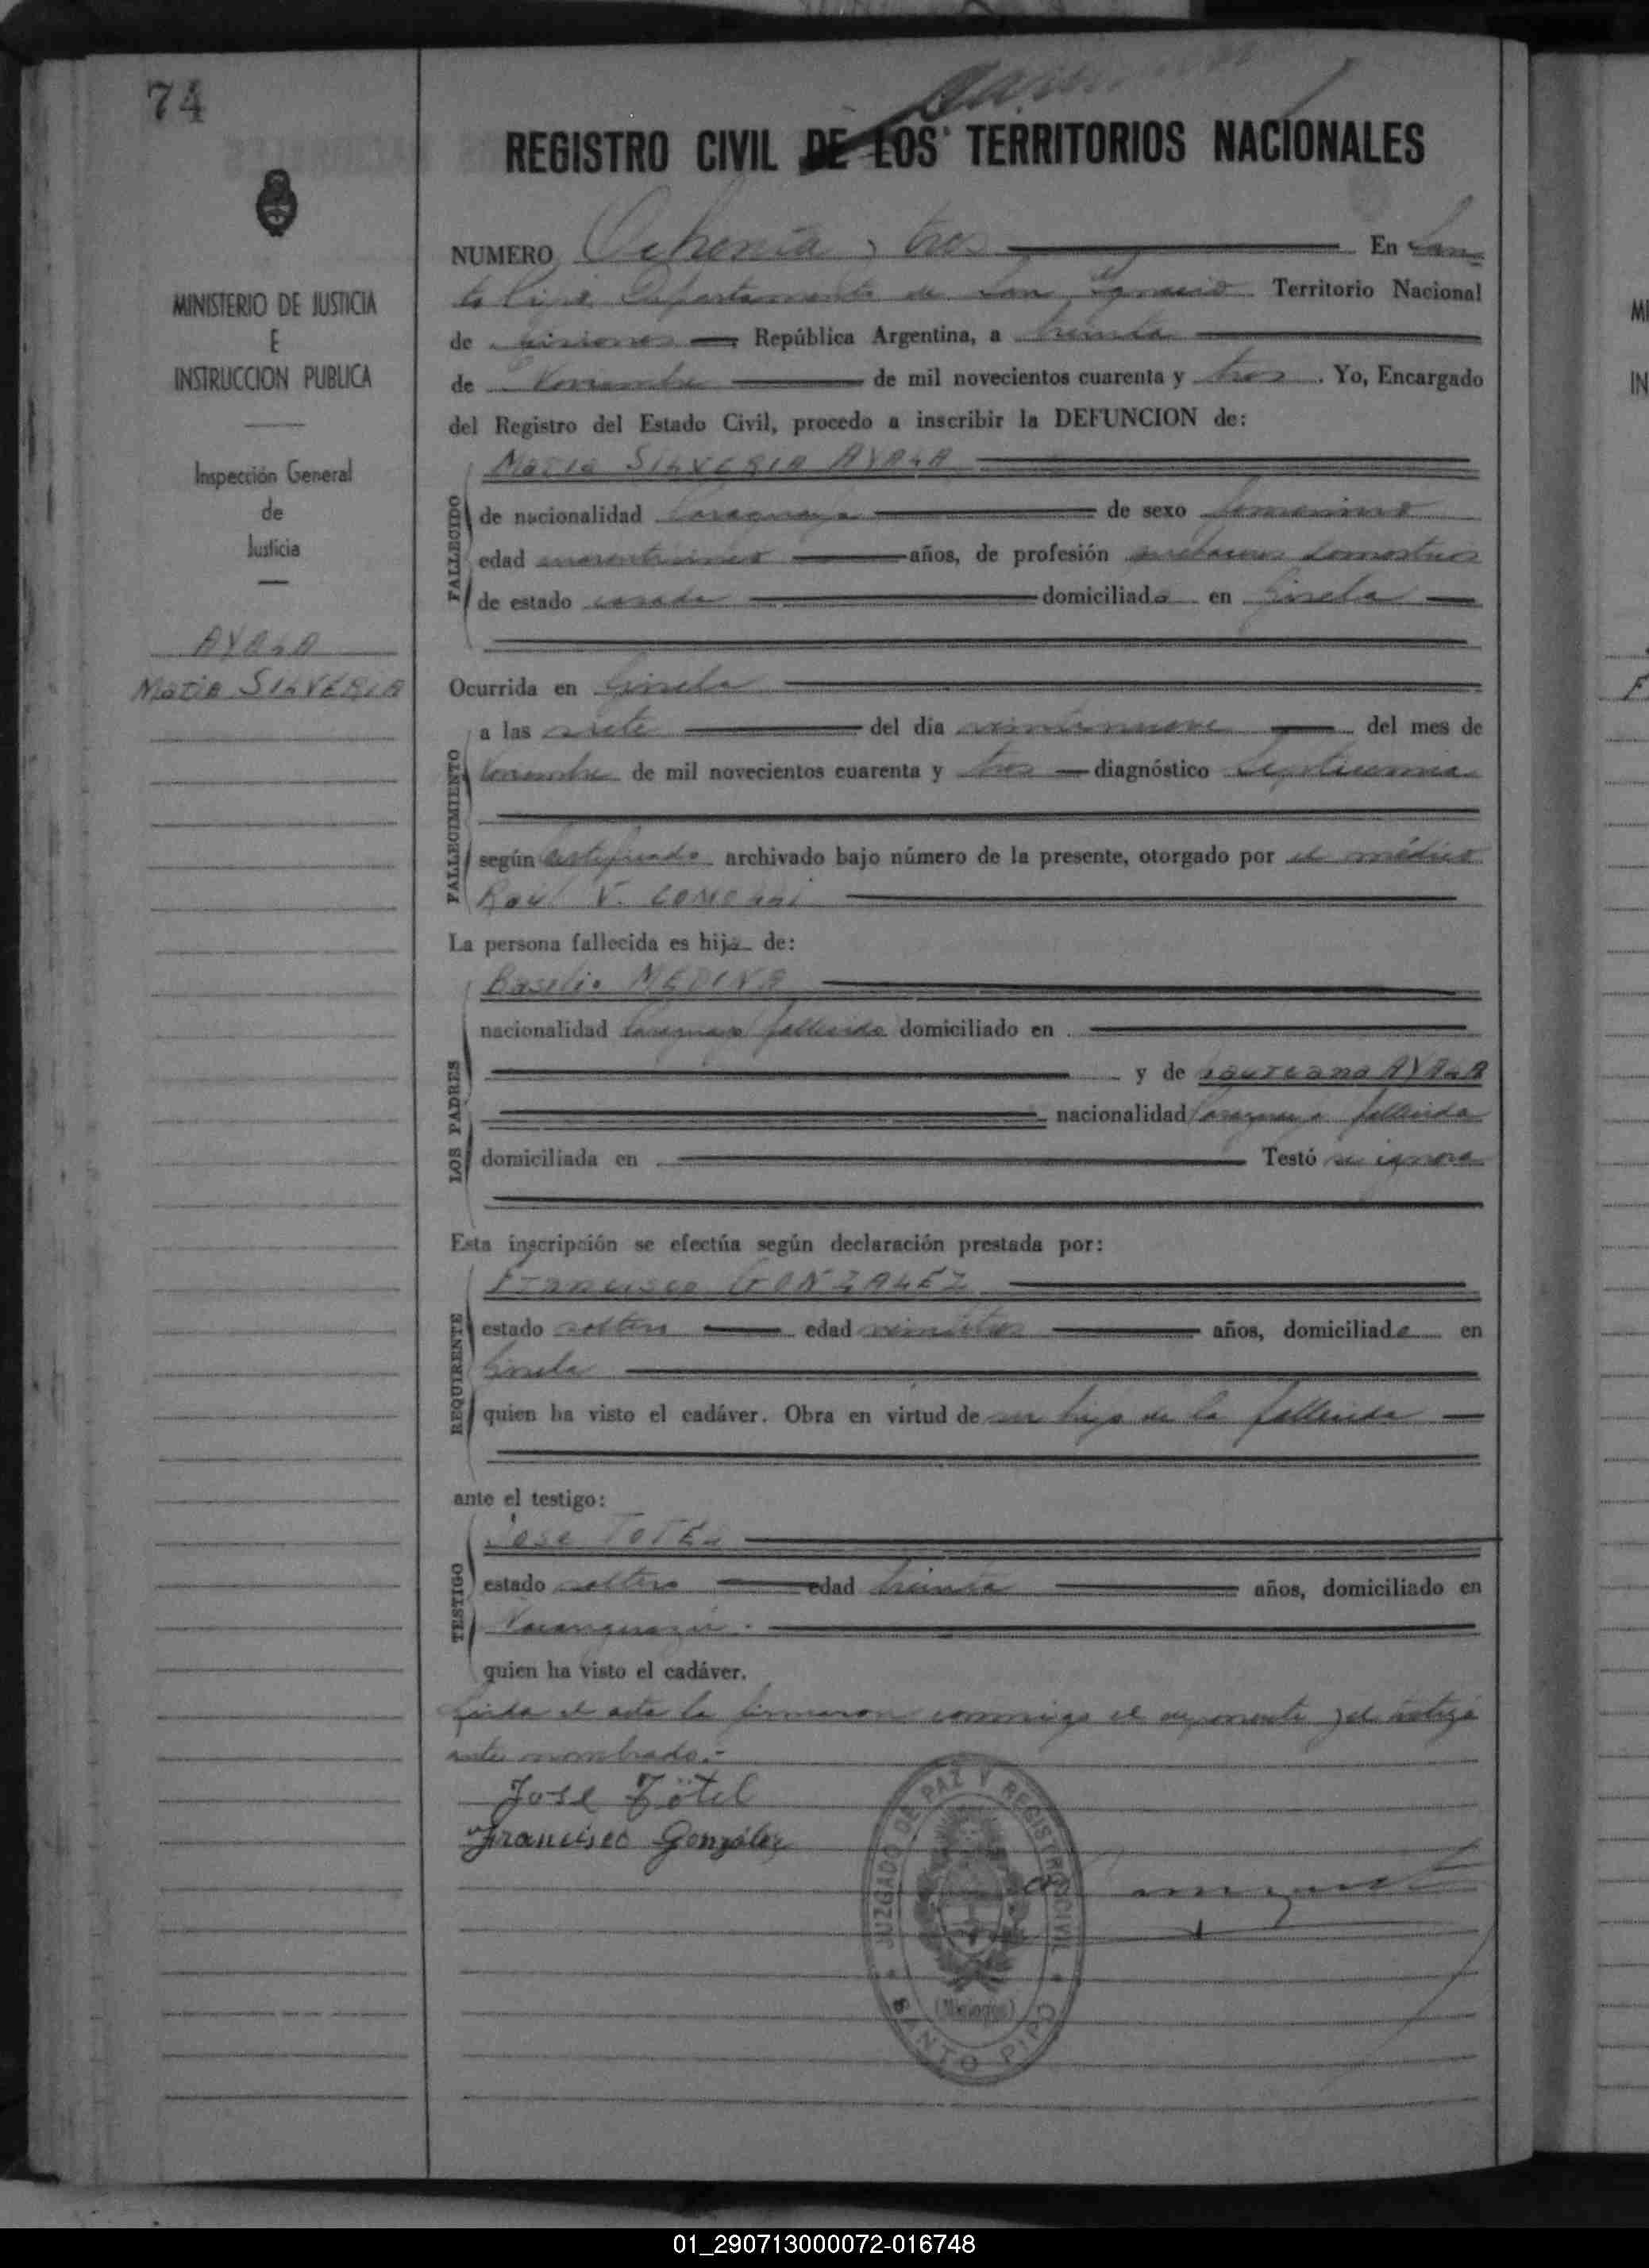 74
REGISTRO CIVIL DE LOS TERRITORIOS NACIONALES
MINISTERIO DE JUSTICIA
E
INSTRUCCION PUBLICA
Inspección General
de
Justicia
AYALA
Maria SILVERIA
NUMERO Ochenta y tres En San
to Pipó Departamento de San Ignacio Territorio Nacional
de Misiones República Argentina, a treinta
de Noviembre de mil novecientos cuarenta y tres. Yo, Encargado
del Registro del Estado Civil, procedo a inscribir la DEFUNCION de:
Maria SILVERIA AYALA
FALLECIDO
de nacionalidad Paraguaya de sexo femenino
edad años, de profesión quehaceres domesticos
de estado casada domiciliada en Gisela
Ocurrida en Gisela
FALLECIMIENTO
a las siete del día veintinueve del mes de
Noviembre de mil novecientos cuarenta y tres diagnóstico Septicemia
según certificado archivado bajo número de la presente, otorgado por el médico
Raúl V.
La persona fallecida es hija de:
LOS PADRES
Basilio MEDINA
nacionalidad Paraguayo fallecido domiciliado en
y de Laureana AYALA
nacionalidad Paraguaya fallecida
domiciliada en Testó se ignora
Esta inscripción se efectúa según declaración prestada por:
REQUIRENTE
Francisco GONZALEZ
estado soltero edad veintitres años, domiciliado en
Gisela
quien ha visto el cadáver. Obra en virtud de ser hijo de la fallecida
ante el testigo:
TESTIGO
Jose TOTEL
estado soltero edad treinta años, domiciliado en
quien ha visto el cadáver.
Leida el acta la firmaron conmigo el exponente y el testigo
antes nombrado.-
Jose Tötel
Francisco González
JUZGADO DE PAZ Y REGISTRO CIVIL
(Misiones)
SANTO PIPO
01_290713000072-016748